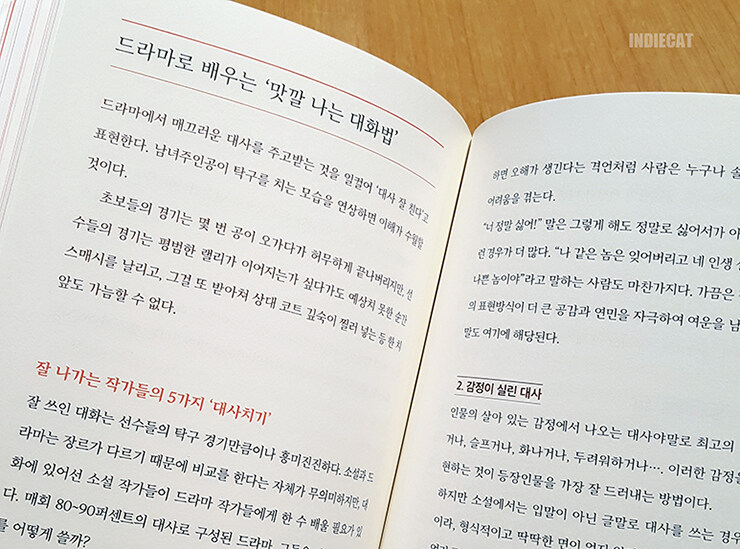 INDIECAT
드라마로 배우는 ‘맛깔 나는 대화법’
드라마에서 매끄러운 대사를 주고받는 것을 일컬어 ‘대사 잘 친다’고
표현한다. 남녀주인공이 탁구를 치는 모습을 연상하면 이해가 수월할
것이다.
초보들의 경기는 몇 번 공이 오가다가 허무하게 끝나버리지만, 선
수들의 경기는 평범한 랠리가 이어지는가 싶다가도 예상치 못한 순간
스매시를 날리고, 그걸 또 받아쳐 상대 코트 깊숙이 찔러 넣는 등 한 치
앞도 가늠할 수 없다.
잘 나가는 작가들의 5가지 ‘대사치기’
잘 쓰인 대화는 선수들의 탁구 경기만큼이나 흥미진진하다. 소설과 드
라마는 장르가 다르기 때문에 비교를 한다는 자체가 무의미하지만, 대
화에 있어선 소설 작가들이 드라마 작가들에게 한 수 배울 필요가 있
다. 매회 80~90퍼센트의 대사로 구성된 드라마, 그들은
를 어떻게 쓸까?
하면 오해가 생긴다는 격언처럼 사람은 누구나 솔
어려움을 겪는다.
“너 정말 싫어!” 말은 그렇게 해도 정말로 싫어서가 아
런 경우가 더 많다. “나 같은 놈은 잊어버리고 네 인생
나쁜 놈이야”라고 말하는 사람도 마찬가지다. 가끔은
의 표현방식이 더 큰 공감과 연민을 자극하여 여운을 남
말도 여기에 해당된다.
2. 감정이 실린 대사
인물의 살아 있는 감정에서 나오는 대사야말로 최고의
거나, 슬프거나, 화나거나, 두려워하거나…. 이러한 감정을
현하는 것이 등장인물을 가장 잘 드러내는 방법이다.
하지만 소설에서는 입말이 아닌 글말로 대사를 쓰는 경우
이라, 형식적이고 딱딱한 면이 없지